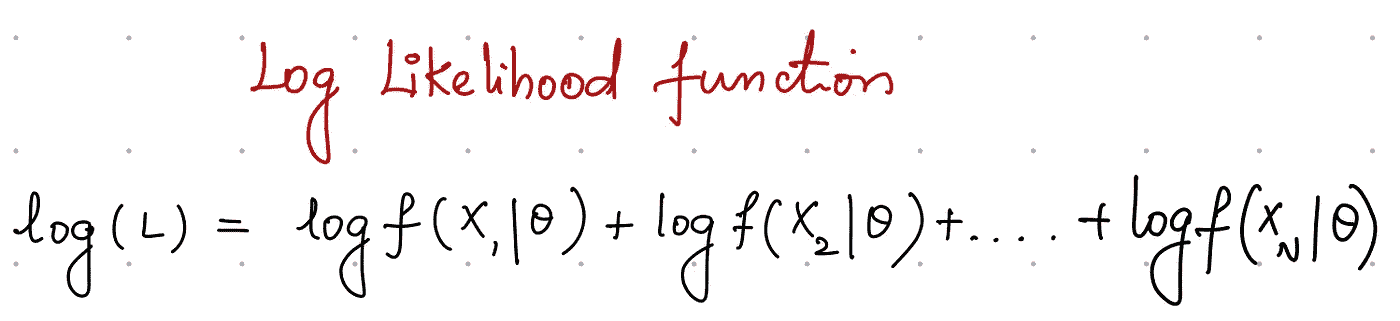 Log Likelihood function
log(L) = log f(X₁|θ) + log f(X₂|θ) + .... + log f(X_N|θ)